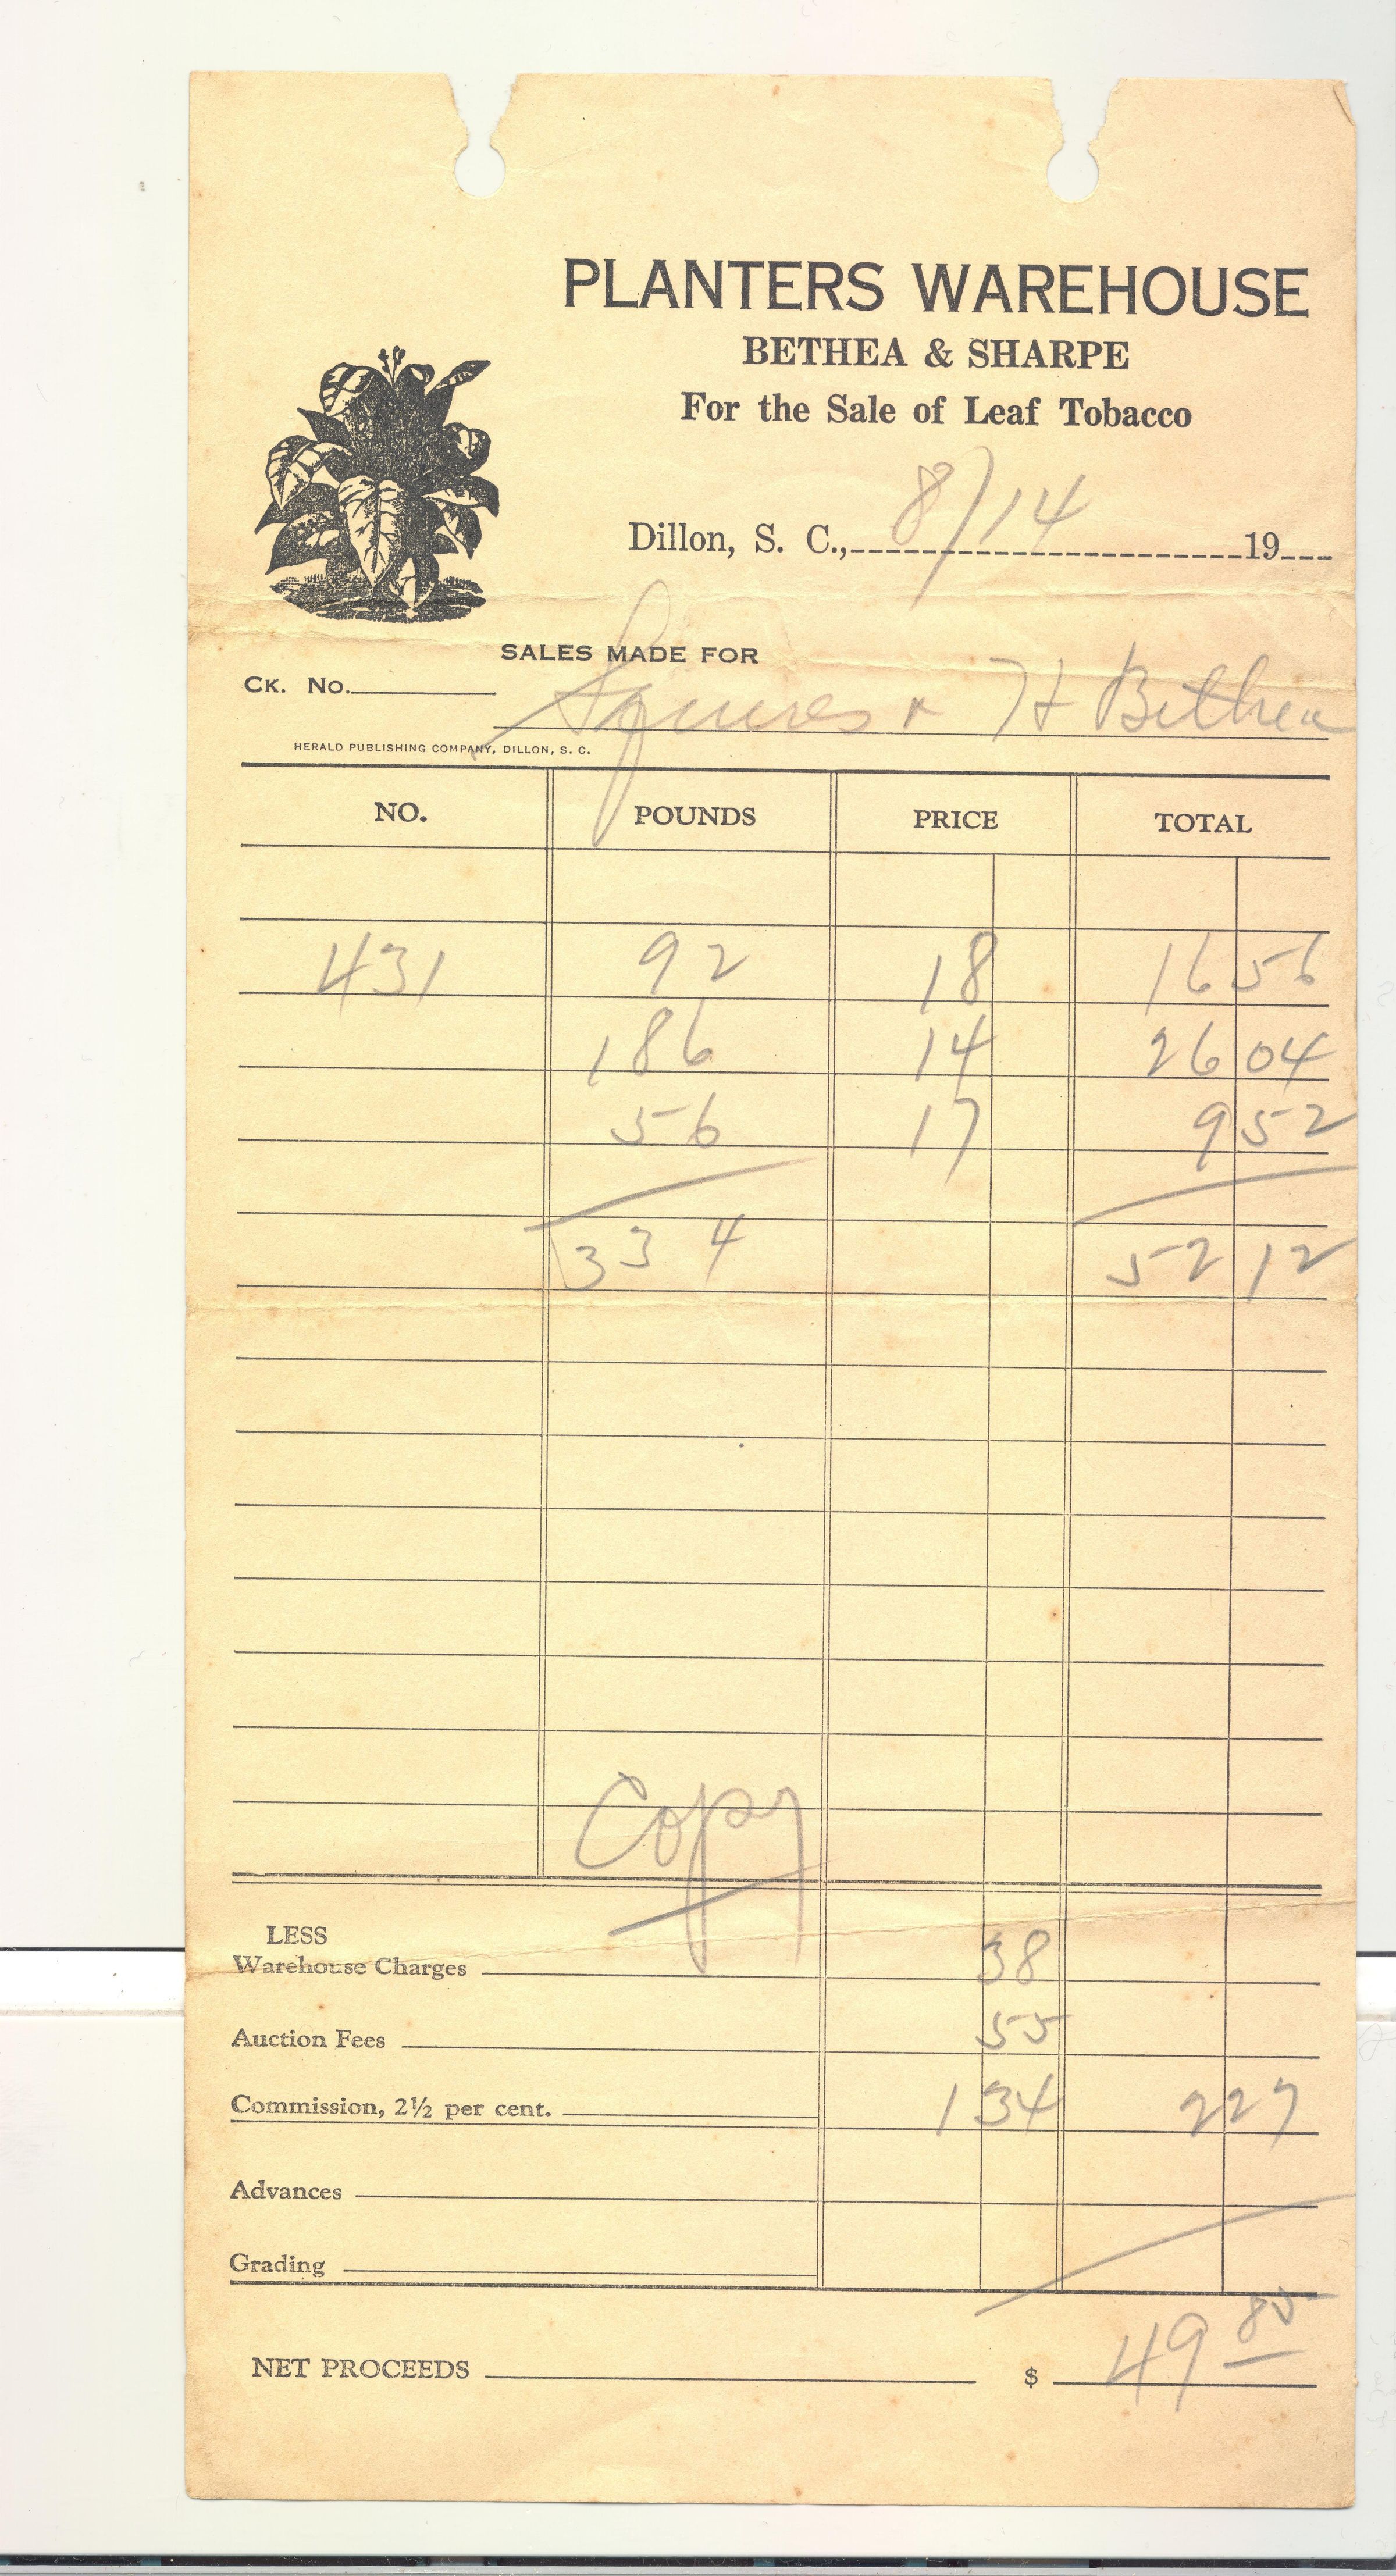 PLANTERS WAREHOUSE
BETHEA & SHARPE
For the Sale of Leaf Tobacco
Dillon, S. C., 8/14 19
SALES MADE FOR
CK. No.
Squires & H Bethea
HERALD PUBLISHING COMPANY, DILLON, S. C.
NO. POUNDS PRICE TOTAL
431 92 18 16 56
186 14 26 04
56 17 9 52
334 52 12
Copy
LESS
Warehouse Charges 38
Auction Fees 55
Commission, 2½ per cent. 1 34 2 27
Advances
Grading
NET PROCEEDS $ 49 85